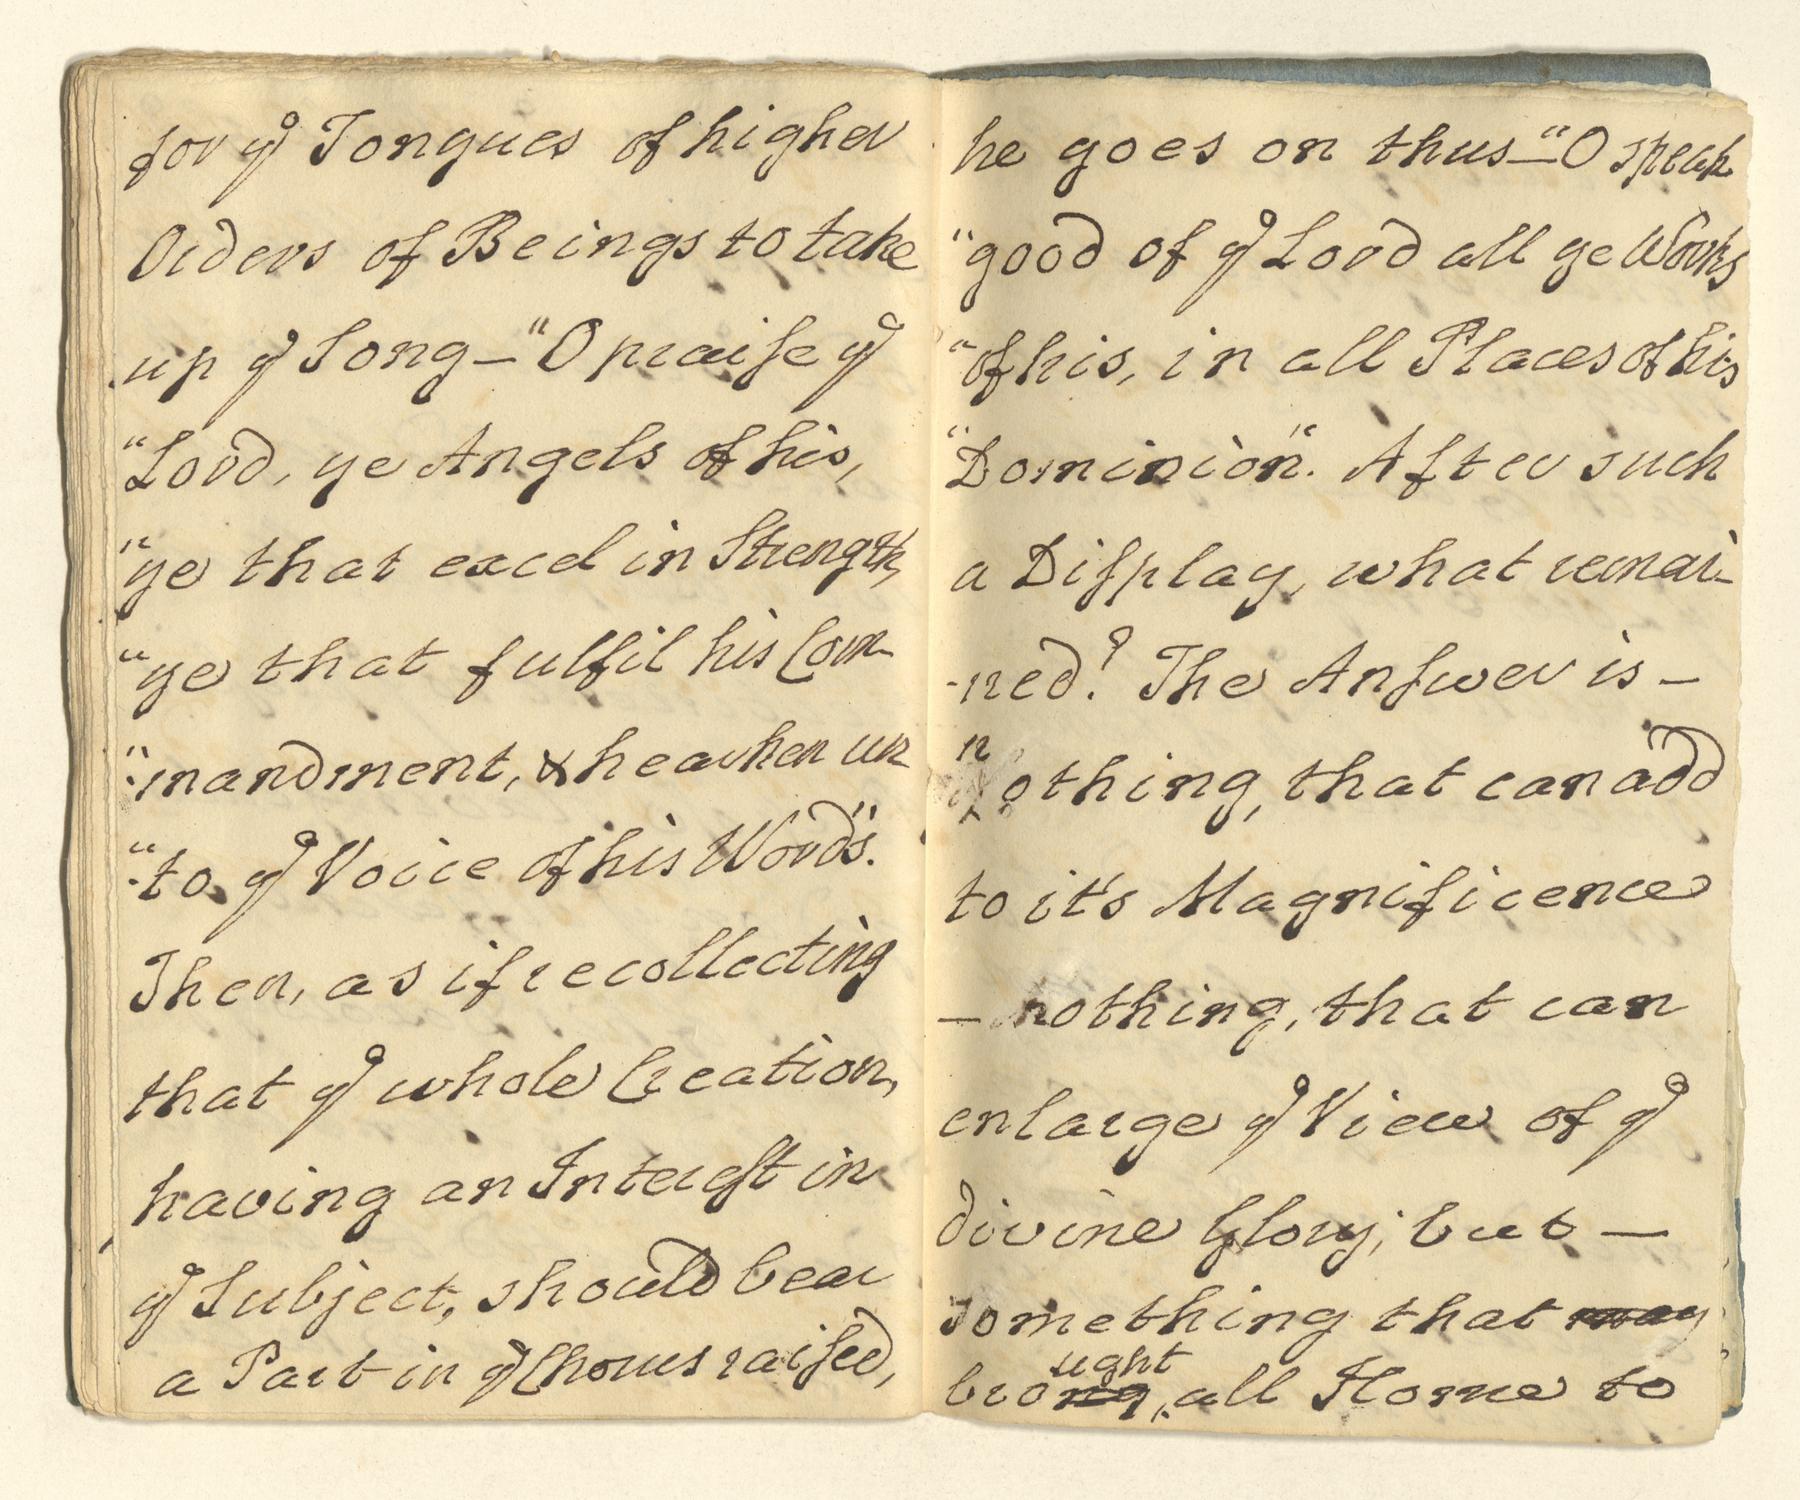 for yͤ Tongues of higher
Orders of Beings to take
up yͤ Song — "O praiſe yͤ
"Lord, ye Angels of his,
"ye that excel in Strength,
"ye that fulfil his Com-
"mandment, & hearken un
"to yͤ Voice of his Words".
Then, as if recollecting
that yͤ whole Creation,
having an Intereſt in
yͤ Subject, should bear
a Part in yͤ Chorus raiſed,
he goes on thus — "O speak
"good of yͤ Lord all ye Works
"of his, in all Places of his
"Dominion". After such
a Diſplay, what remai-
-ned? The Anſwer is —
nothing, that can add
to it's Magnificence
— nothing, that can
enlarge yͤ View of yͤ
divine Glory; but —
something that may
brought all Home to